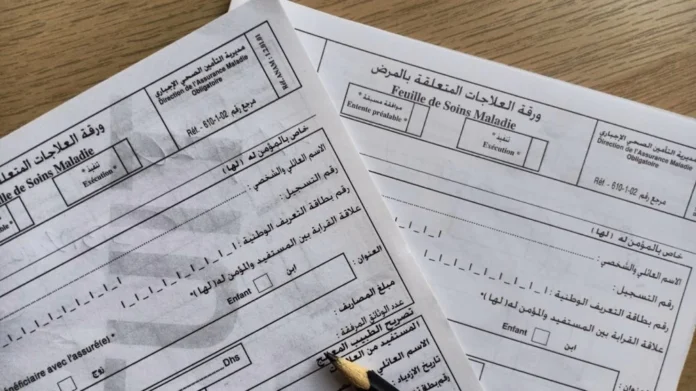 مديرية التأمين الصحي الإجباري
Direction de l'Assurance Maladie
Obligatoire
مرجع رقم 02-1-610
Réf. -
Réf.ANAM : 1.2.01.01
ورقة العلاجات المتعلقة
de Soins Maladie
تنفيذ *
Exécution *
خاص بالمؤمن له (لها)
الاسم العائلي والشخصي :
رقم التسجيل :
رقم بطاقة التعريف الوطنية :
علاقة القرابة بين المستفيد والمؤمن له( لها)*
ابن
Enfant
العنوان :
bénéficiaire avec l'assuré(e)*
زوج
مبلغ المصاريف :
Dhs
عدد الوثائق المرفقة :
تصريح الطبيب المعالج
المستفيد من العلاجات
الاسم العائلي
تاريخ الازدياد
ورقة العلاجات المتعلقة بالمرض
Feuille de Soins Maladie
موافقة مسبقة *
Entente préalable *
تنفيذ *
Exécution *
مديرية التأمين الصحي الإجباري
Direction de l'Assurance Maladie
Obligatoire
Réf. - 610-1-02 مرجع رقم
خاص بالمؤمن له (لها)
الاسم العائلي والشخصي :
رقم التسجيل :
رقم بطاقة التعريف الوطنية :
علاقة القرابة بين المستفيد والمؤمن له( لها)*
ابن
Enfant
العنوان :